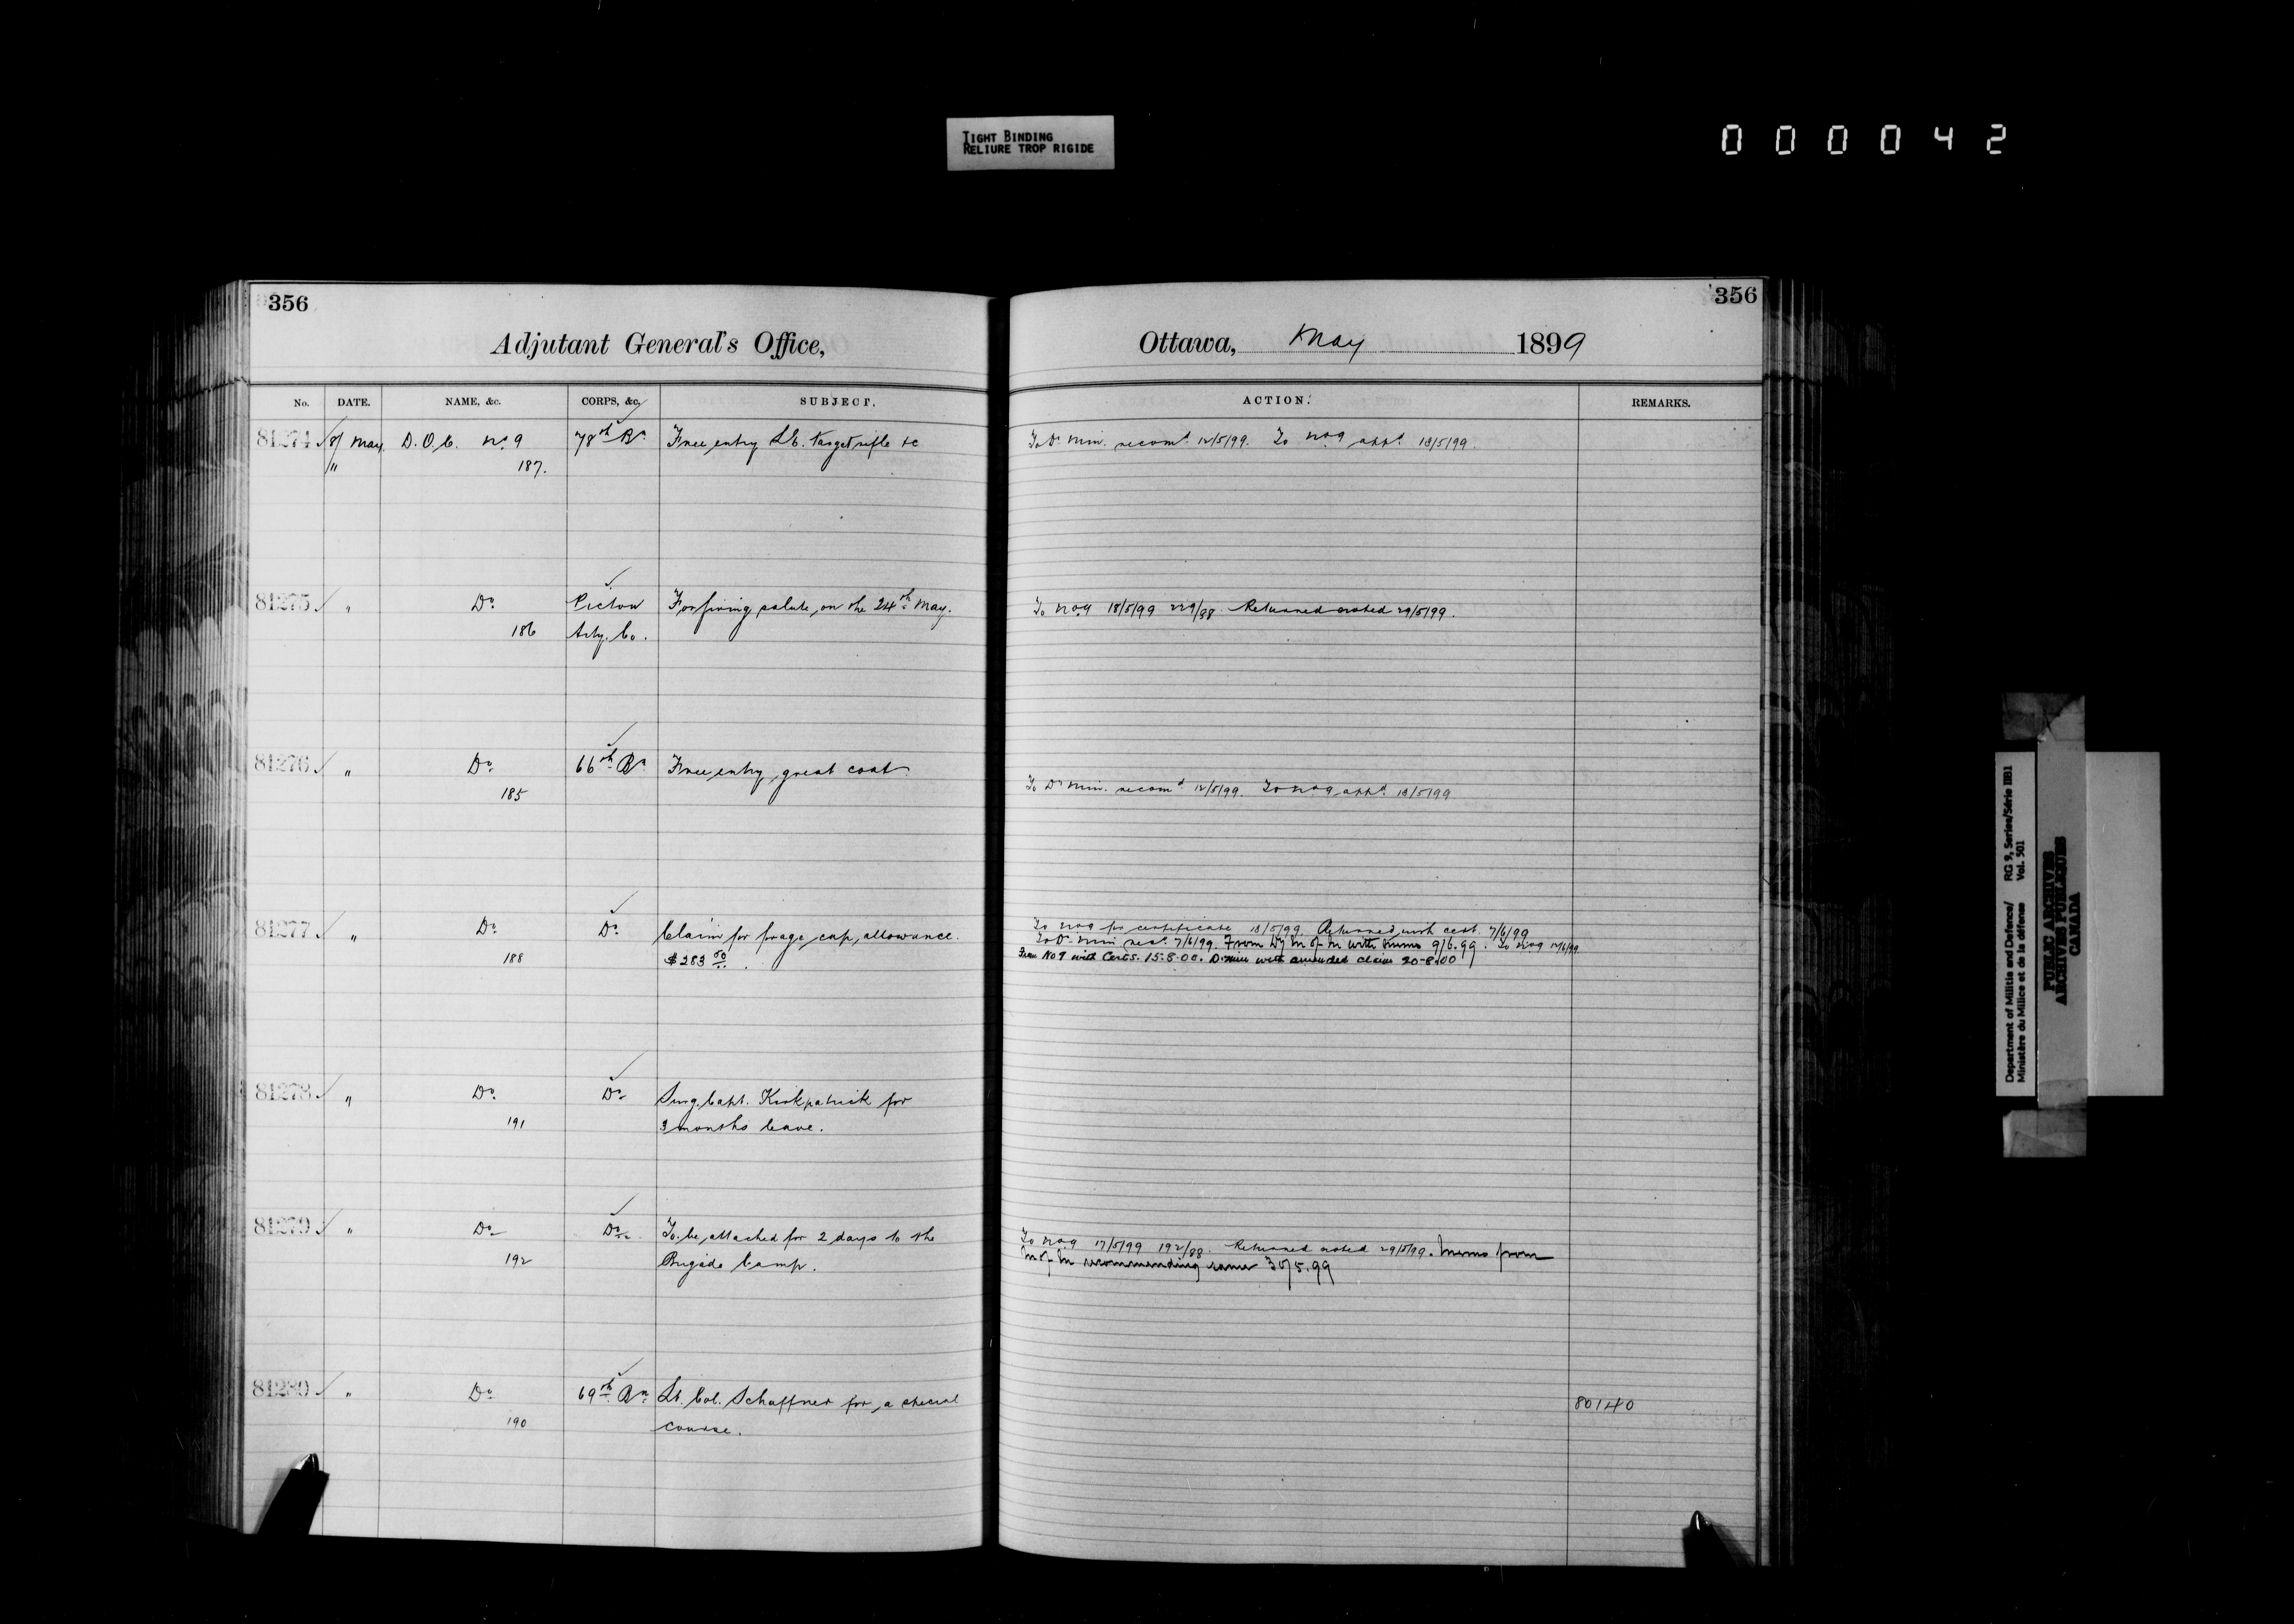 TIGHT BINDING
RELIURE TROP RIGIDE
000042
356
Adjutant General's Office,
No. DATE. NAME, &c. CORPS, &c. SUBJECT.
81274 8/ May D.O.C. No. 9 78th Bn Free entry Lt. target rifle &c
" 187.
81275 " Do Pictou For firing salute on the 24th May.
186 Arty. Co.
81276 " Do 66th Bn Free entry great coat
185
81277 " Do Do Claim for forage cap allowance.
188 $283 50
81278 " Do Do Surg. Capt. Kirkpatrick for
191 3 months leave.
81279 " Do Do To be attached for 2 days to the
192 Brigade Camp.
81280 " Do 69th Bn Lt. Col. Schaffner for a special
190 course.
356
Ottawa, May 1899
ACTION. REMARKS.
To Dr Min. recomd. 12/5/99. To No 9 appd. 18/5/99.
To No 9 18/5/99 229/98 Returned noted 29/5/99.
To Dr Min. recomd 12/5/99. To No 9 appd. 18/5/99
To No 9 for certificate 18/5/99. Returned with cert. 7/6/99
To Dr Min 7/6/99. From Dy M of M with memo 9/6.99. To No 9 12/6/99
From No 9 with Certs. 15.8.00. D. Min with amended claim 20-8.00
To No 9 17/5/99 192/98. Returned noted 29/5/99. Memo from
M of M recommending same 30/5.99
80140
Department of Militia and Defence/ RG 9, Series/Série IIB1
Ministère du Milice et de la défense Vol. 501
PUBLIC ARCHIVES
ARCHIVES PUBLIQUES
CANADA